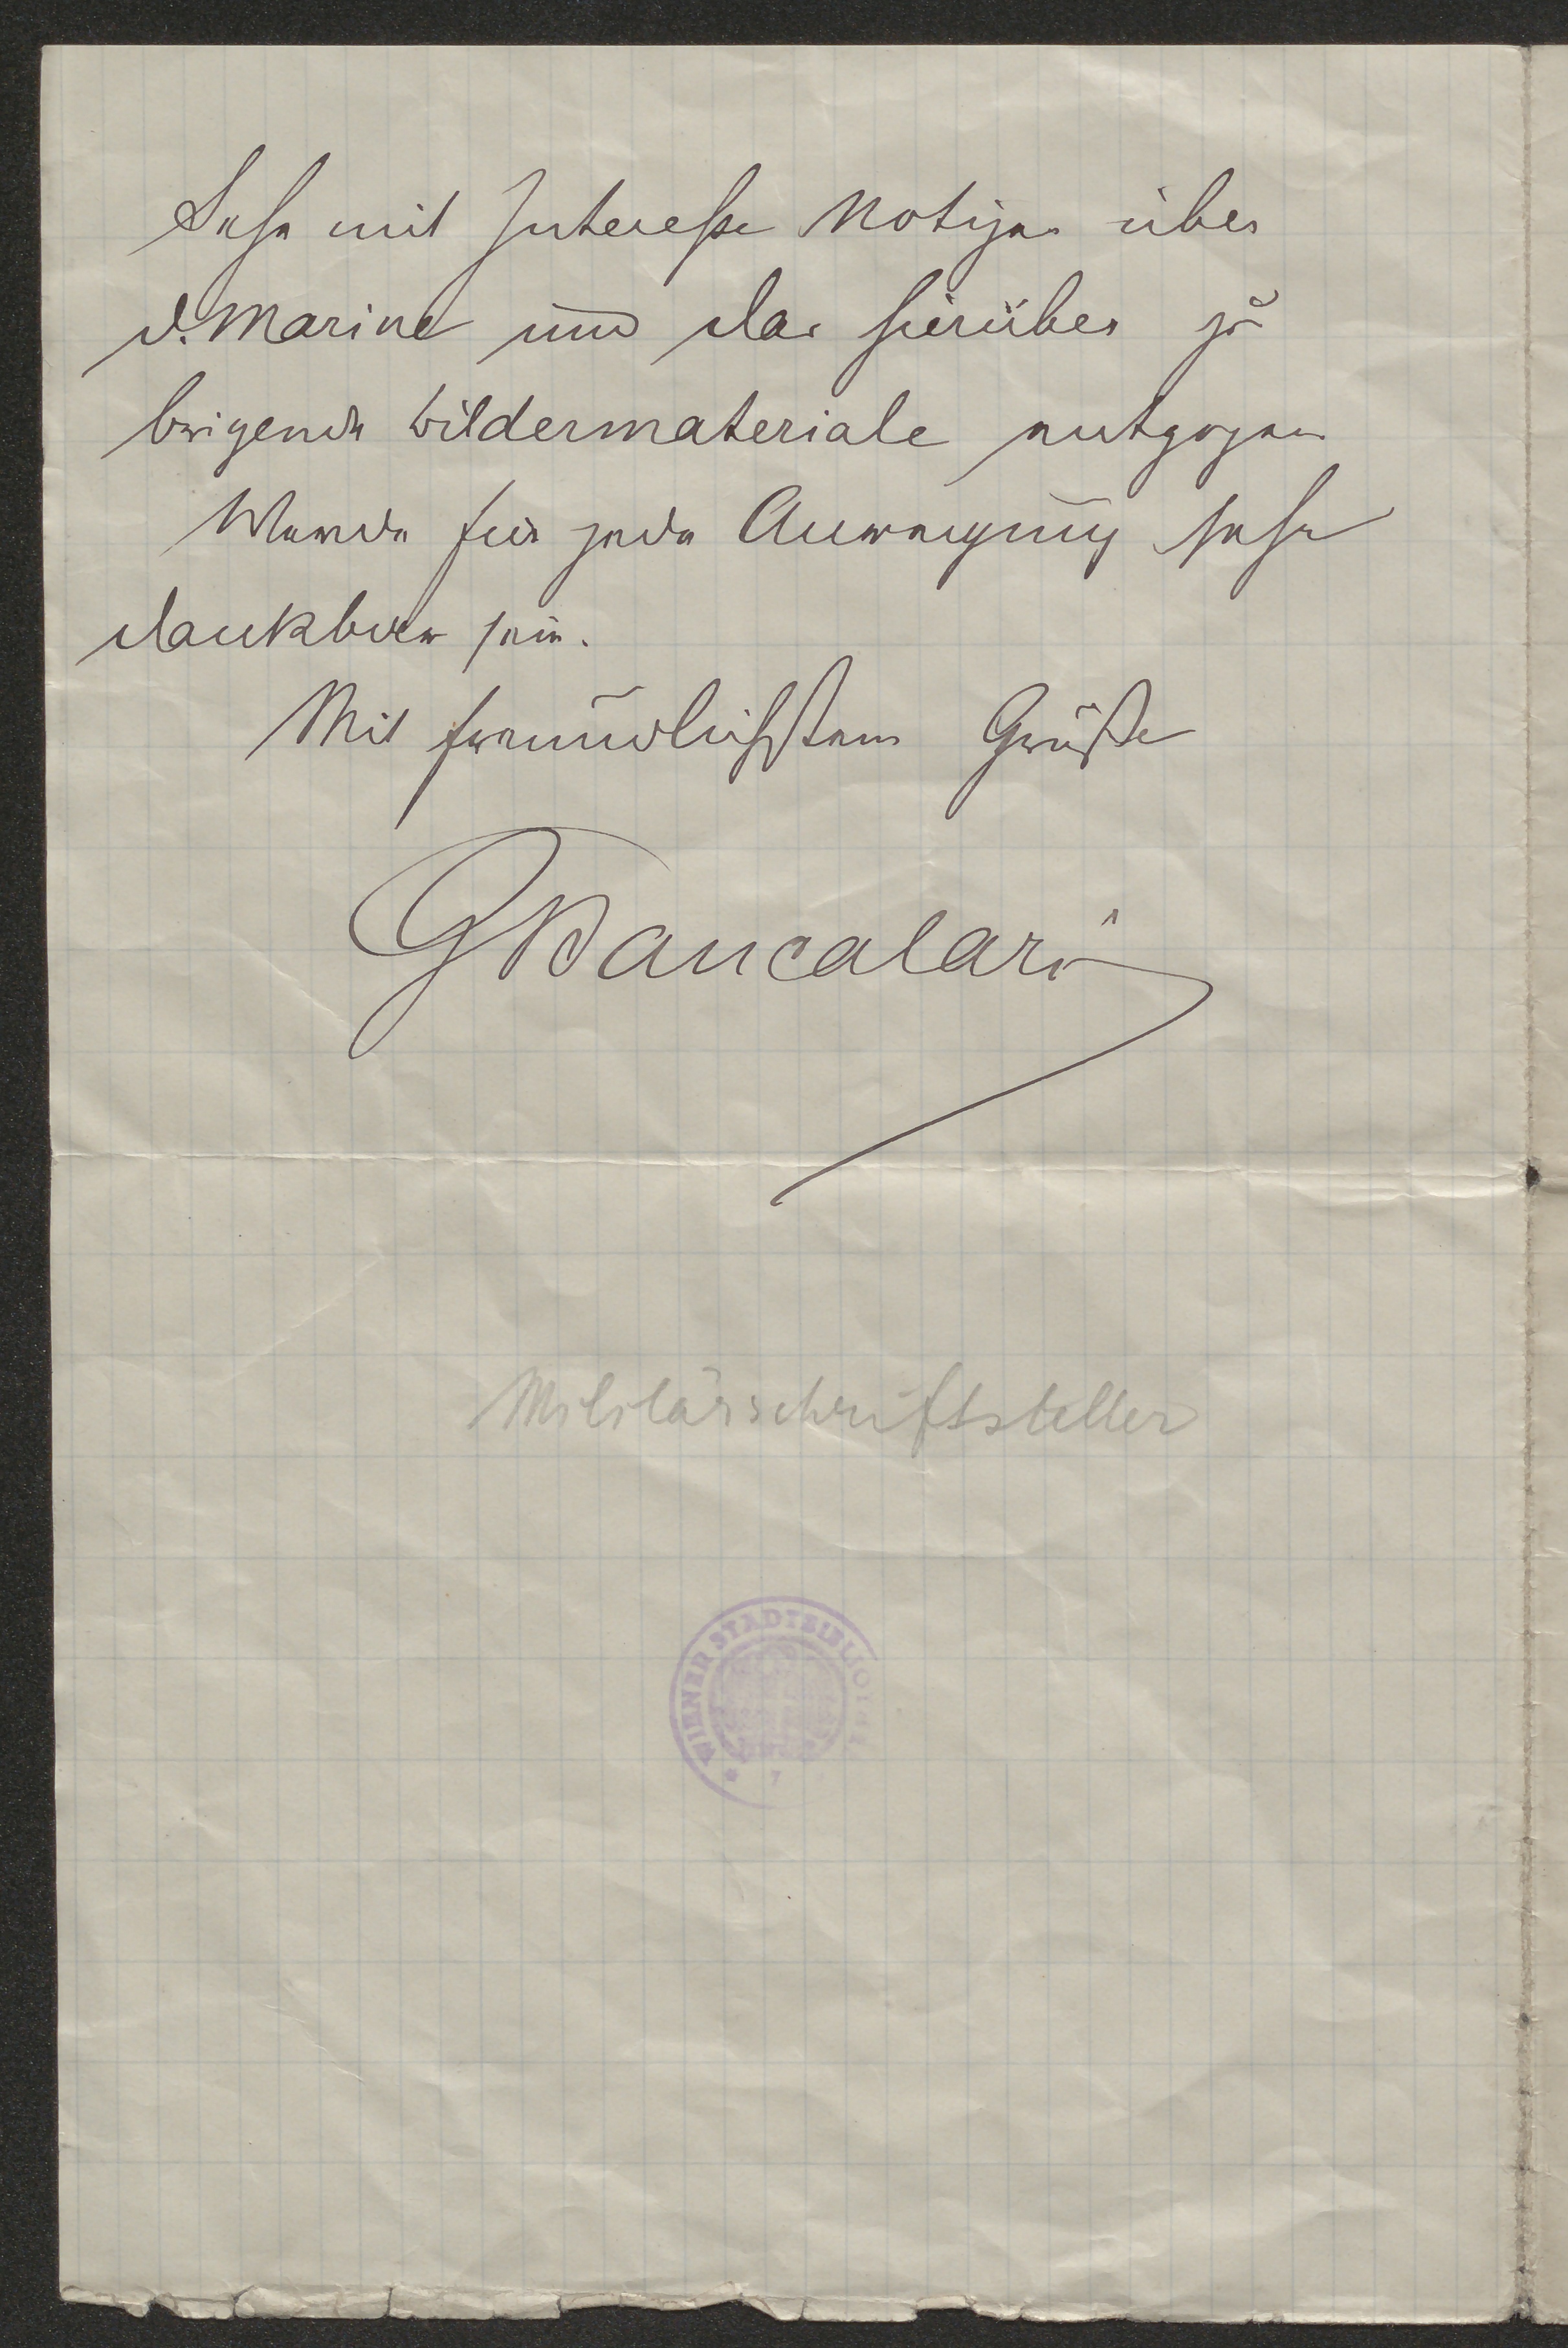 Sehe mit Interesse Notizen über
d. Marine und das hierüber zu
bringende Bildermateriale entgegen
Werde für jede Anregung sehr
dankbar sein.
Mit freundlichstem Gruße
GBancalari
Militärschriftsteller
WIENER STADTBIBLIOTHEK